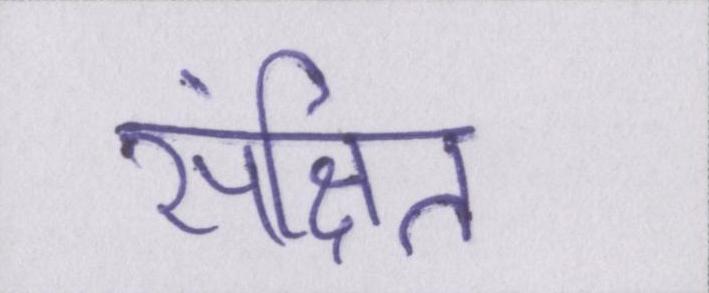 संक्षित